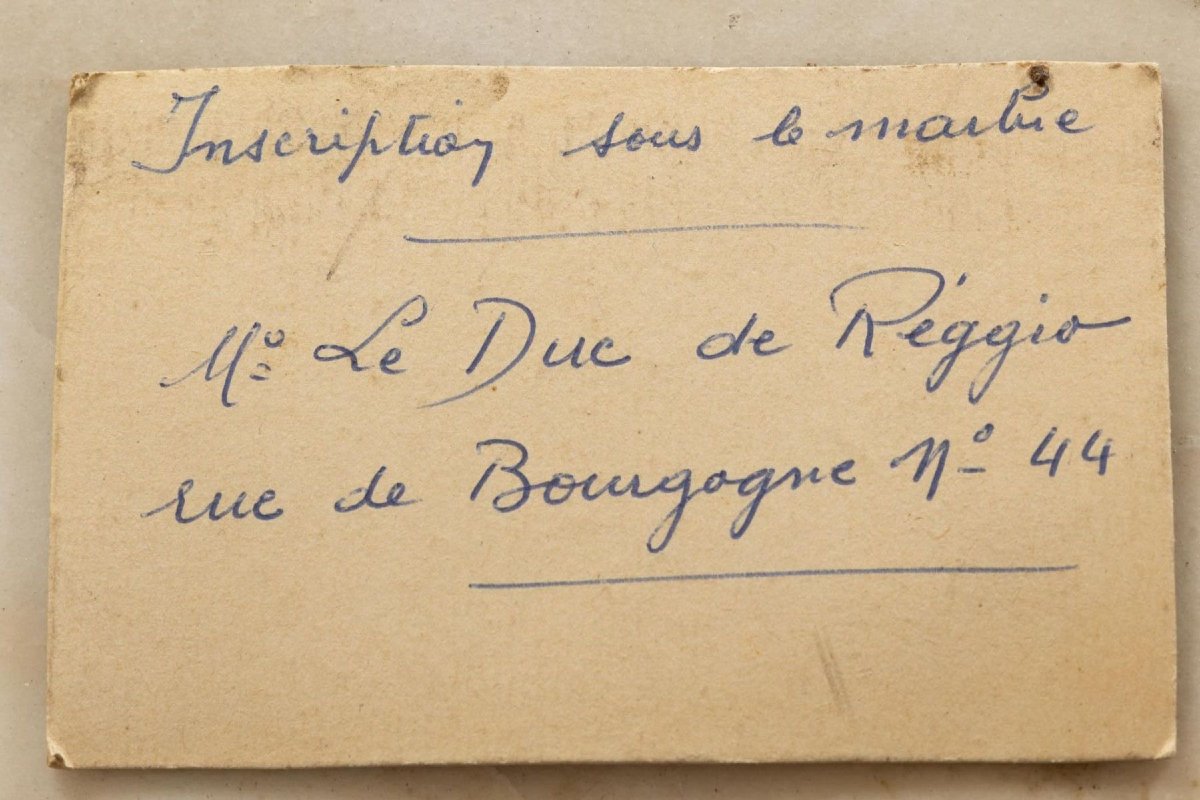 Inscription sous le marbre
Mº Le Duc de Réggio
rue de Bourgogne Nº 44